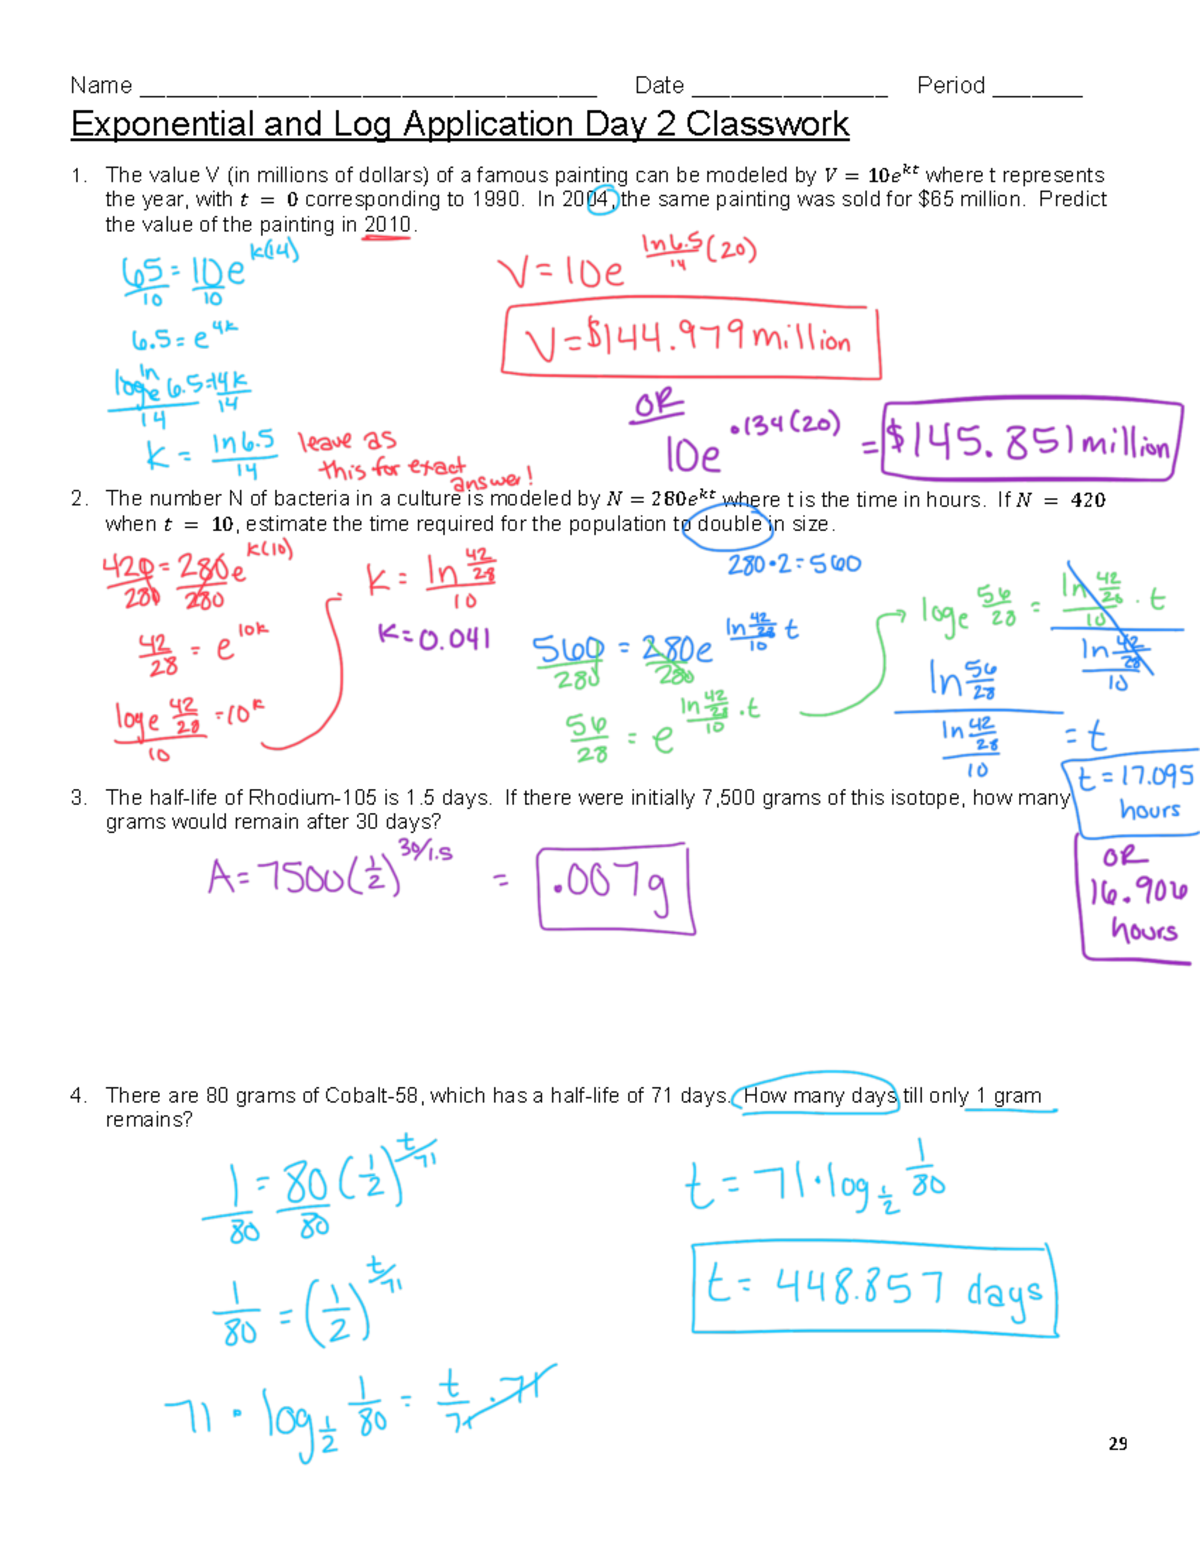 Name ___________________________________ Date _______________ Period _______
Exponential and Log Application Day 2 Classwork
1. The value V (in millions of dollars) of a famous painting can be modeled by V = 10e^kt where t represents
the year, with t = 0 corresponding to 1990. In 2004, the same painting was sold for $65 million. Predict
the value of the painting in 2010.
65/10 = 10e^k(14)/10
6.5 = e^4k
log_e 6.5 = 14k
ln
14 14
k = ln6.5/14 leave as
this for exact
answer!
V = 10e^ln6.5/14(20)
V = $144.979 million
OR
10e^.134(20) = $145.851 million
2. The number N of bacteria in a culture is modeled by N = 280e^kt where t is the time in hours. If N = 420
when t = 10, estimate the time required for the population to double in size.
420/280 = 280e^k(10)/280
42/28 = e^10k
log_e 42/28 = 10^k
10
k = ln 42/28
10
k = 0.041
280•2=560
560/280 = 280e^(ln 42/28)/10 t
280
56/28 = e^(ln 42/28)/10 •t
log_e 56/28 = (ln 42/28)/10 • t
(ln 42/28)/10
ln 56/28
(ln 42/28)/10 = t
t = 17.095
hours
OR
16.906
hours
3. The half-life of Rhodium-105 is 1.5 days. If there were initially 7,500 grams of this isotope, how many
grams would remain after 30 days?
A = 7500(1/2)^30/1.5 = .007g
4. There are 80 grams of Cobalt-58, which has a half-life of 71 days. How many days till only 1 gram
remains?
1/80 = 80(1/2)^t/71
80
1/80 = (1/2)^t/71
71 • log_1/2 1/80 = t/71 • 71
t = 71•log_1/2 1/80
t = 448.857 days
29